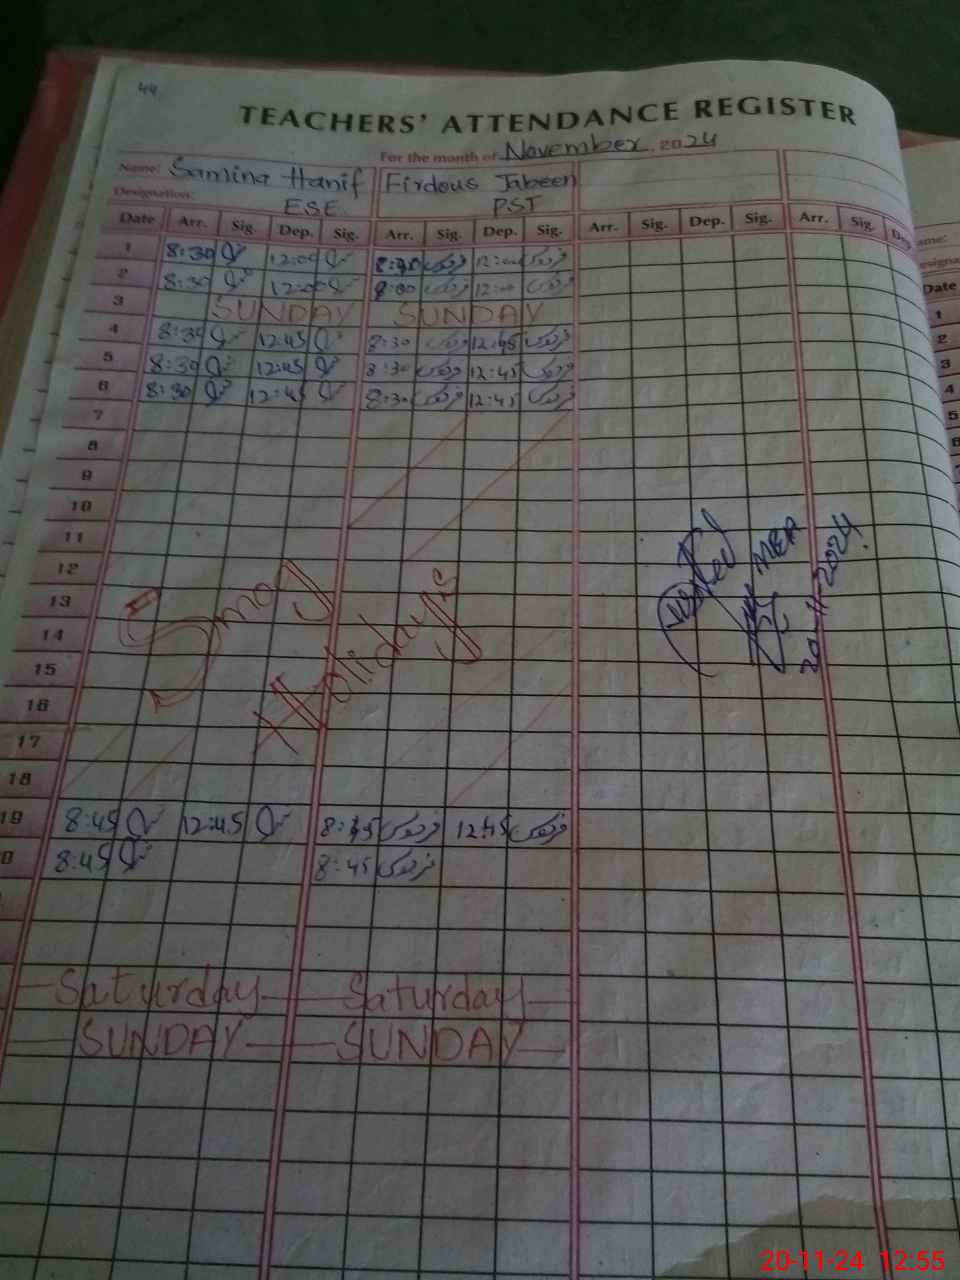 44
TEACHERS' ATTENDANCE REGISTER
For the month of November 2024
Name: Samina Hanif Firdous Jabeen
Designation: ESE PST
Date Arr. Sig. Dep. Sig. Arr. Sig. Dep. Sig. Arr. Sig. Dep. Sig. Arr. Sig. Dep.
1 8:30 12:00 فردوس 12:00 فردوس
2 8:30 12:00 فردوس 12:00 فردوس
3 SUNDAY SUNDAY
4 8:30 12:45 8:30 فردوس 12:45 فردوس
5 8:30 12:45 8:30 فردوس 12:45 فردوس
6 8:30 12:45 8:30 فردوس 12:45 فردوس
7
8
9
10
11
12
13
14
15
16
17
18
Smog
Holidays
Visited
MEA
20-11-2024
19 8:45 12:45 8:45 فردوس 12:45 فردوس
8:45 8:45 فردوس
Saturday Saturday
SUNDAY SUNDAY
Date
1
2
3
4
5
6
20-11-24 12:55